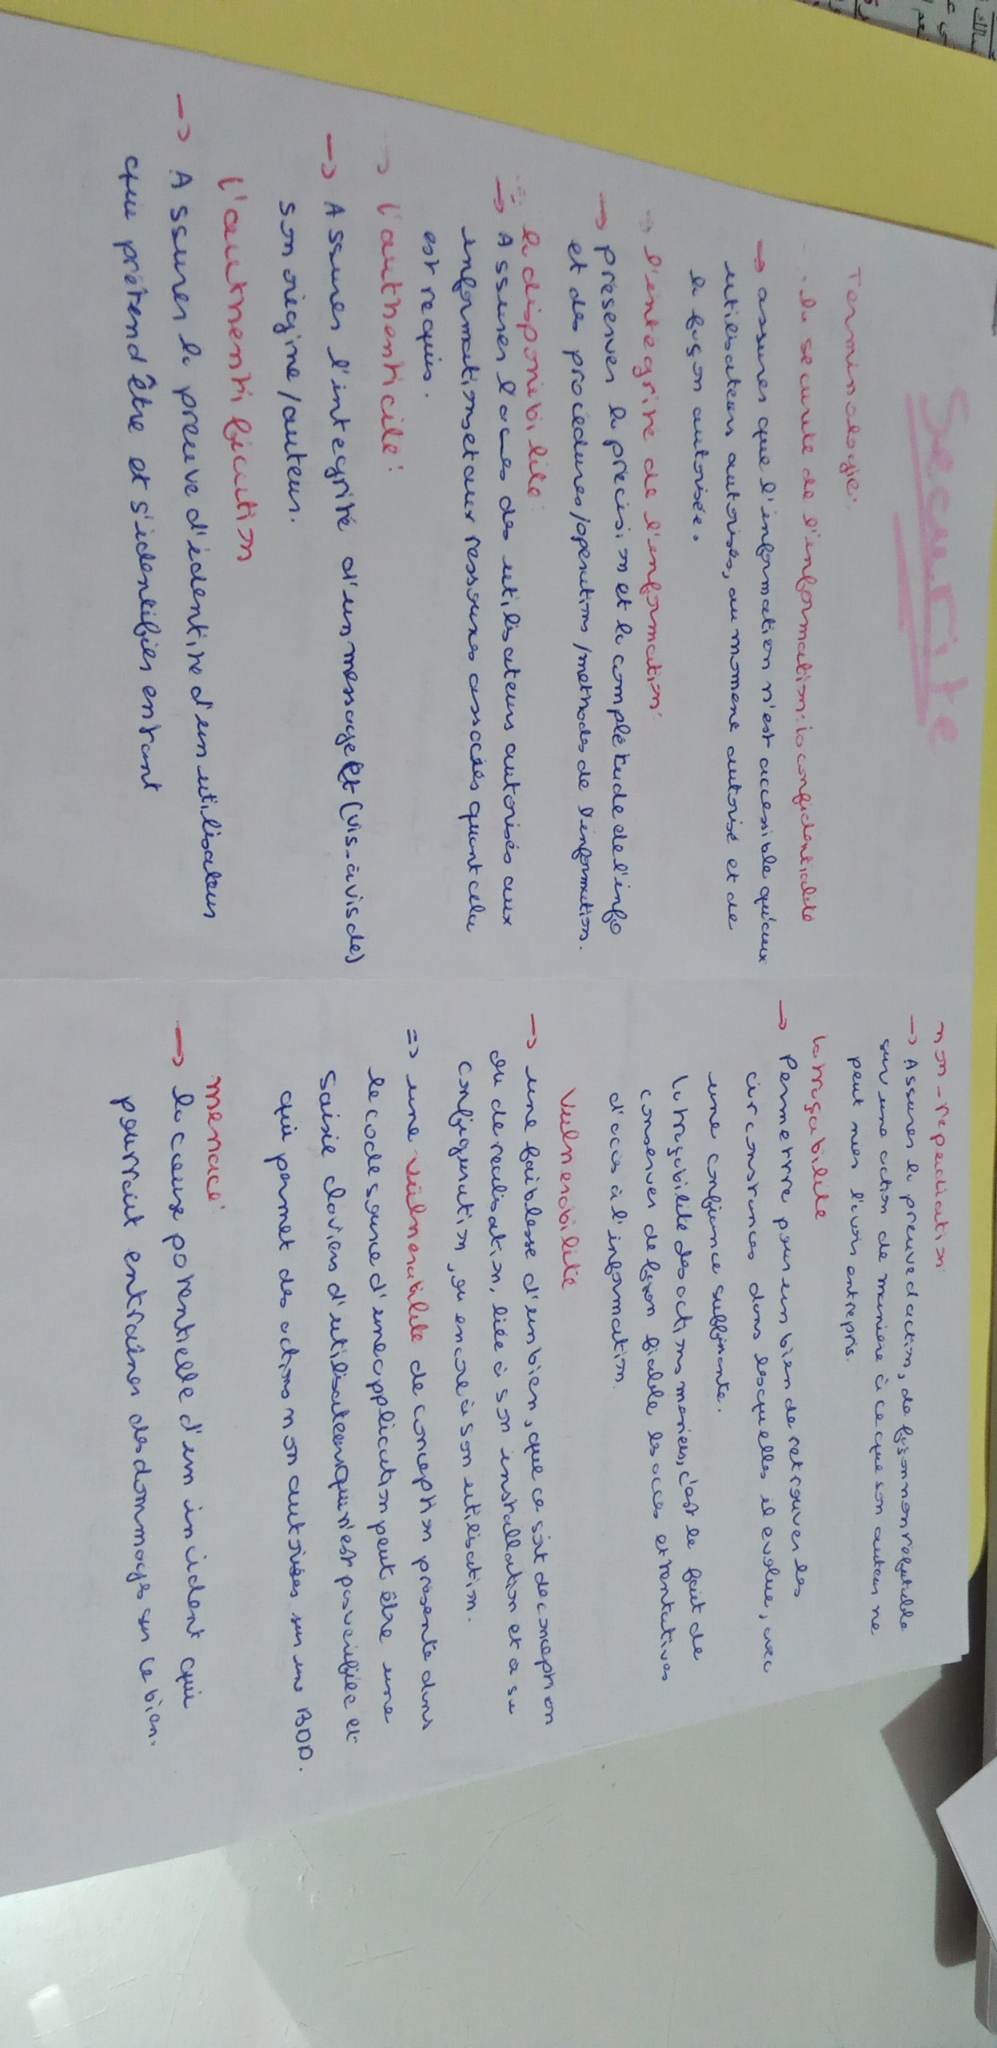 Securite
Terminologie:
la securite de l'information: la confidentialite
→ assurer que l'information n'est accessible qu'aux
utilisateurs autorisés, au moment autorisé et de
la façon autorisée.
l'intégrité de l'information:
→ préserver la précision et la complétude de l'info
et des procédures/opérations/methodes de l'information.
la disponibilité:
→ Assurer l'accès des utilisateurs autorisés aux
informations et aux ressources associées quant cela
est requis.
l'authenticité:
→ Assurer l'intégrité d'un message et (vis-à-vis de)
son origine/auteur.
l'authentification
→ Assurer la preuve d'identité d'un utilisateur
qui prétend être et s'identifier entant
non-repudiation:
→ Assurer la preuve d'action, de façon non réfutable
sur une action de manière à ce que son auteur ne
peut nier l'avoir entrepris.
la traçabilité
→ Permettre pour un bien de retrouver les
circonstances dans lesquelles il evolue, avec
une confiance suffisante.
la traçabilité des actions menées, c'est le fait de
conserver de façon fiable les accès et tentatives
d'accès à l'information.
Vulnerabilité
→ une faiblesse d'un bien, que ce soit de conception
ou de realisation, liée à son installation et a sa
configuration, ou encore à son utilisation.
=> une vulnerabilité de conception présente dans
le code source d'une application peut être une
saisie clavier d'utilisateur qui n'est pas vérifiée et
qui permet des actions non autorisées sur une BDD.
menace
→ la cause potentielle d'un incident qui
pourrait entraîner des dommages sur ce bien.